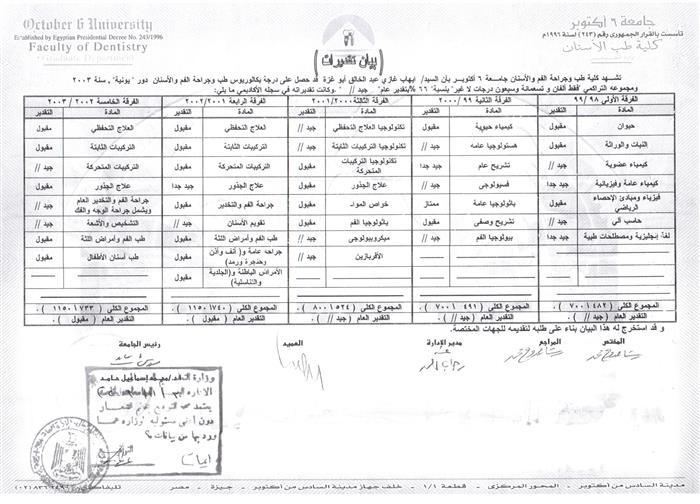 October 6 University
Established by Egyptian Presidential Decree No. 243/1996
Faculty of Dentistry
Graduate Department
جامعة ٦ أكتوبر
تأسست بالقرار الجمهورى رقم (٢٤٣) لسنة ١٩٩٦م
كلية طب الأسنان
(بيان تقديرات)
تشهد كلية طب وجراحة الفم والأسنان جامعة ٦ أكتوبر بأن السيد/ ايهاب غازي عبد الخالق أبو غزة قد حصل على درجة بكالوريوس طب وجراحة الفم والأسنان دور " يونية" , سنة ٢٠٠٣
ومجموعه التراكمي "فقط ألفان و تسعمائة وسبعون درجات لا غير" بنسبة ٦٦ % بتقدير عام " جيد // " .وكانت تقديراته في سجله الأكاديمي ما يلي:
الفرقة الأولى ٩٨ /٩٩ الفرقة الثانية ٩٩ /٢٠٠٠ الفرقة الثالثة ٢٠٠٠/٢٠٠١ الفرقة الرابعة ٢٠٠١/٢٠٠٢ الفرقة الخامسة ٢٠٠٢ /٢٠٠٣
المادة التقدير المادة التقدير المادة التقدير المادة التقدير المادة التقدير
حيوان مقبول كيمياء حيوية مقبول تكنولوجيا العلاج التحفظي جيد // العلاج التحفظي مقبول العلاج التحفظي مقبول
النبات والوراثة مقبول هستولوجيا عامه جيد // تكنولوجيا التركيبات الثابتة مقبول التركيبات الثابتة مقبول التركيبات الثابتة مقبول
كيمياء عضوية جيد // تشريح عام جيد جدا تكنولوجيا التركيبات المتحركة مقبول التركيبات المتحركة مقبول التركيبات المتحركة جيد //
كيمياء عامة وفيزيائية جيد جدا فسيولوجى جيد // علاج الجذور مقبول علاج الجذور مقبول علاج الجذور جيد جدا
فيزياء ومبادئ الإحصاء الرياضي مقبول باثولوجيا عامة ممتاز خواص المواد مقبول جراحة الفم والتخدير مقبول جراحة الفم والتخدير العام ويشمل جراحة الوجه والفك جيد //
حاسب آلي جيد // تشريح وصفى مقبول باثولوجيا الفم مقبول تقويم الأسنان جيد // التشخيص والأشعة جيد //
لغة إنجليزية ومصطلحات طبية جيد جدا بيولوجيا الفم جيد // ميكروبيولوجى جيد // طب الفم وأمراض اللثة مقبول طب الفم وأمراض اللثة مقبول
الأقربازين جيد // جراحه عامة و( أنف وأذن وحنجرة ورمد) مقبول طب أسنان الأطفال مقبول
الأمراض الباطنة و(الجلدية والتناسلية) مقبول
المجموع الكلى ( ٤٨٢ \ ٧٠٠ ). المجموع الكلى ( ٤٩١ \ ٧٠٠ ). المجموع الكلى ( ٥٢٤ \ ٨٠٠ ). المجموع الكلى ( ٧٤٠ \ ١١٥٠ ). المجموع الكلى ( ٧٣٣ \ ١١٥٠ ).
التقدير العام ( جيد // ). التقدير العام ( جيد // ). التقدير العام ( جيد // ). التقدير العام ( مقبول ). التقدير العام ( مقبول ).
و قد استخرج له هذا البيان بناء على طلبه لتقديمه للجهات المختصة.
المختص المراجع مدير الإدارة العميد رئيس الجامعة
مدينة السادس من أكتوبر - المحور المركزى - قطعة ١/١ - خلف جهاز مدينة السادس من أكتوبر - جيزة - مصر